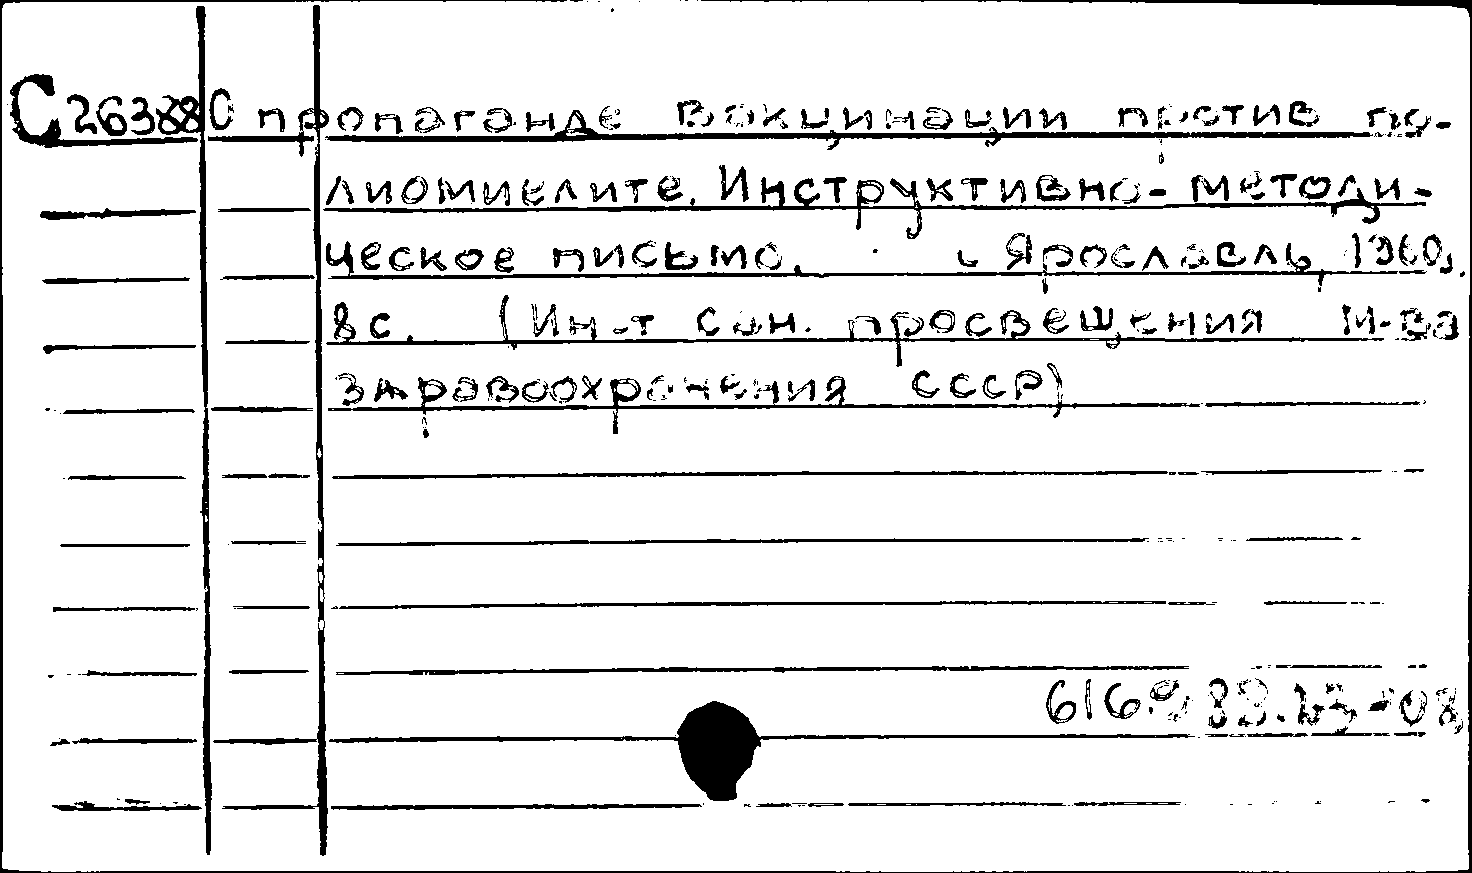 С26388 О пропаганде вакцинации против по-
лиомиелите. Инструктивно-методи-
ческое письмо. Ярославль, 1960.
8с. (Ин-т сан. просвещения М-ва
здравоохранения СССР)